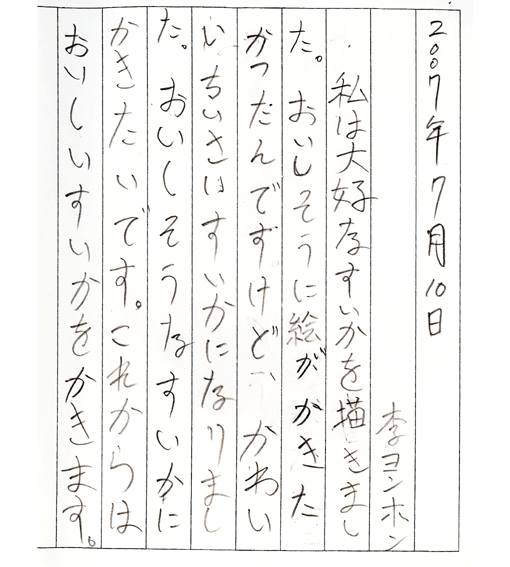 2007年7月10日
李ヨンホン
私は大好なすいかを描きまし
た。おいしそうに絵がかきた
かったんですけど、かわい
いちいさいすいかになりまし
た。おいしそうなすいかに
かきたいです。これからは
おいしいすいかをかきます。